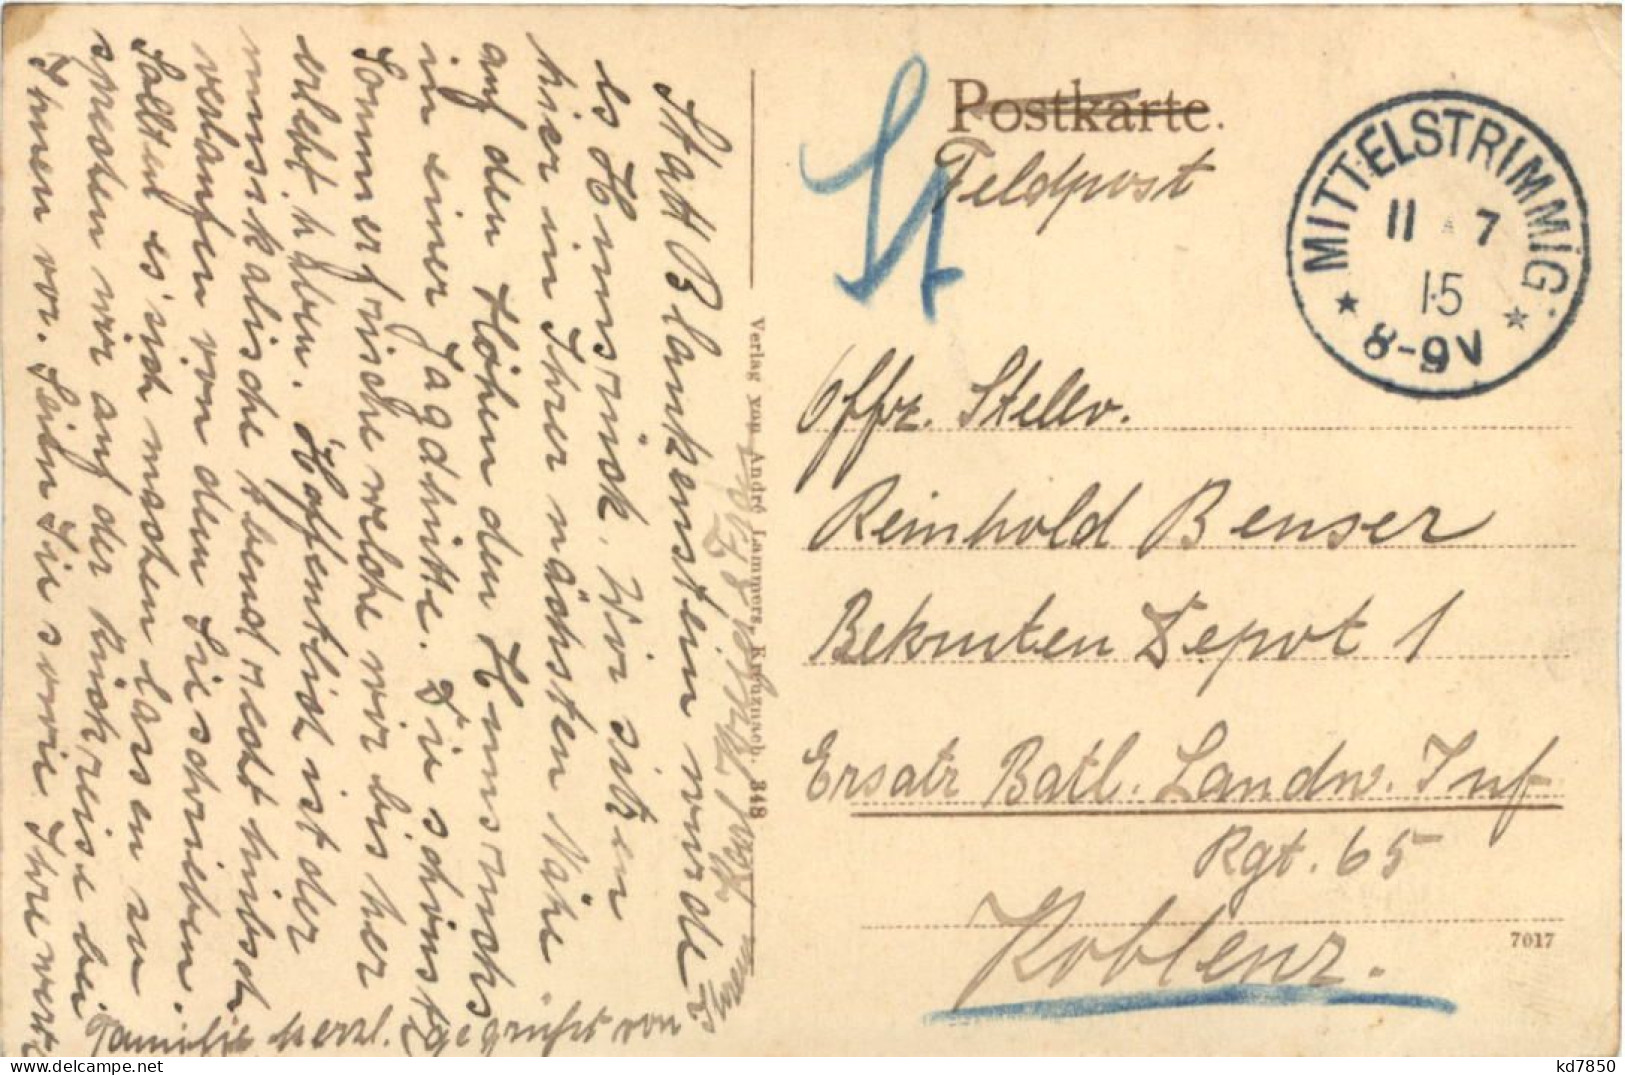 Postkarte.
Feldpost
MITTELSTRIMMIG
11 7
15
8-9V
Offz. Stellv.
Reinhold Benser
Rekruten Depot 1
Ersatz Batl. Landw. Inf
Rgt. 65
Koblenz.
7017
Verlag von André Lammers, Kreuznach. 348
Statt Blankenstein wurde
es Hunsrück. Wir sitzen
hier in Ihrer nächsten Nähe
auf den Höhen des Hunsrücks
in einer Jagdhütte. Die schönste
Sommerfrische welche wir bisher
erlebt haben. Hoffentlich ist der
musikalische Abend recht hübsch
verlaufen von dem Sie schrieben.
Sollte es sich machen lassen zu
sprechen wir auf der Rückreise bei
Ihnen vor. Seien Sie sowie Ihre werte
Familie herzl. gegrüßt von
Ihrem Karl & Frau
kd7850